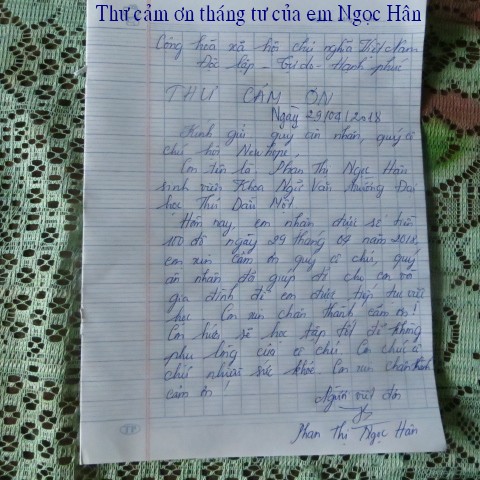 Thư cảm ơn tháng tư của em Ngọc Hân
Cộng hòa xã hội chủ nghĩa Việt Nam
Độc lập - Tự do - Hạnh phúc
THƯ CẢM ƠN
Ngày 29/04/2018
Kính gửi quý ân nhân, quý cô
chú hội Newhope,
Con tên là Phan Thị Ngọc Hân
sinh viên Khoa Ngữ Văn trường Đại
học Thủ Dầu Một.
Hôm nay, em nhận được số tiền
100 đô ngày 29 tháng 04 năm 2018,
em xin cảm ơn quý cô chú, quý
ân nhân đã giúp đỡ cho con và
gia đình để em được tiếp tục việc
học. Con xin chân thành cảm ơn!
Con hứa sẽ học tập tốt để không
phụ lòng của cô chú. Con chúc cô
chú nhiều sức khỏe. Con xin chân thành
cảm ơn!
Người viết đơn
Phan Thị Ngọc Hân